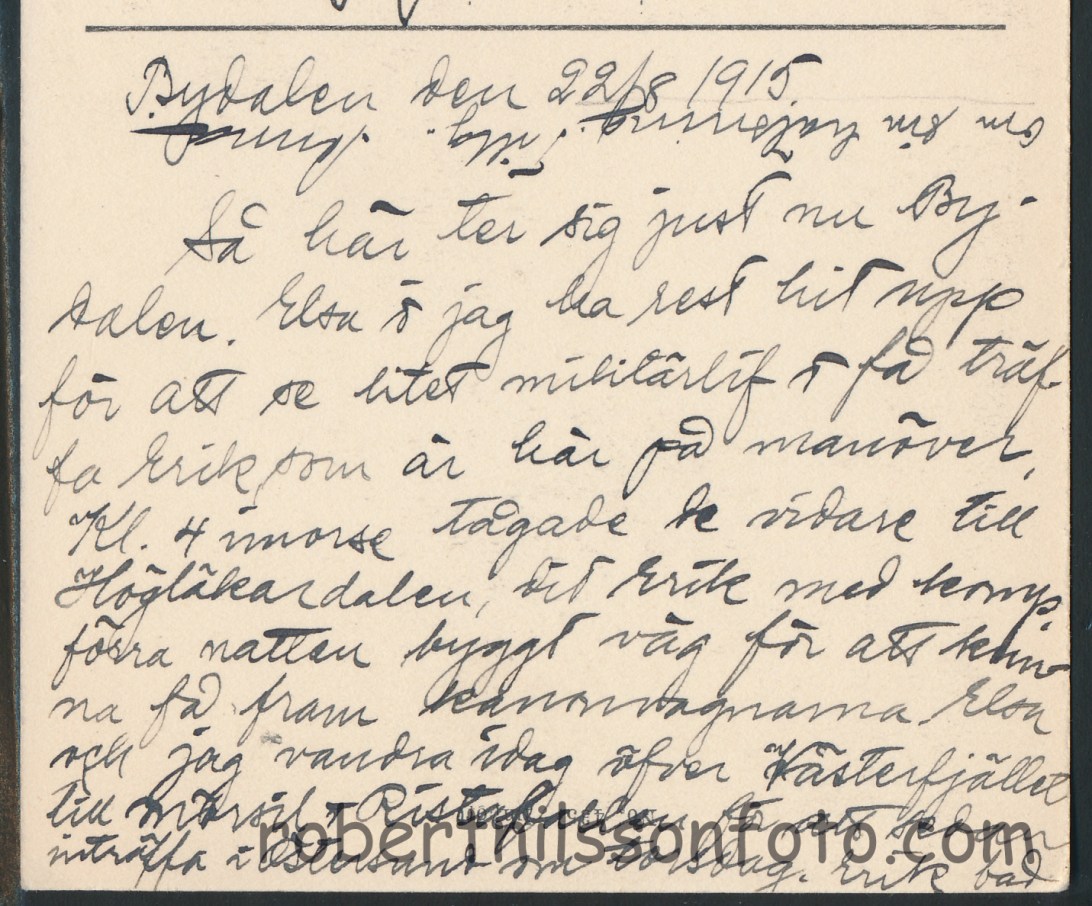 Bydalen den 22/8 1915.
Så här ter sig just nu By-
dalen. Elsa o jag ha rest hit upp
för att se litet militärlif o få träf-
fa Erik, som är här på manöver.
Kl. 4 imorse tågade de vidare till
Höglåkardalen, dit Erik med komp.
förra natten byggt väg för att kun-
na få fram kanonvagnarna. Elsa
och jag vandra idag öfver Västerfjället
till Mörsil o Ristafallen för att sedan
inträffa i Östersund om torsdag. Erik bad
robertnilssonfoto.com